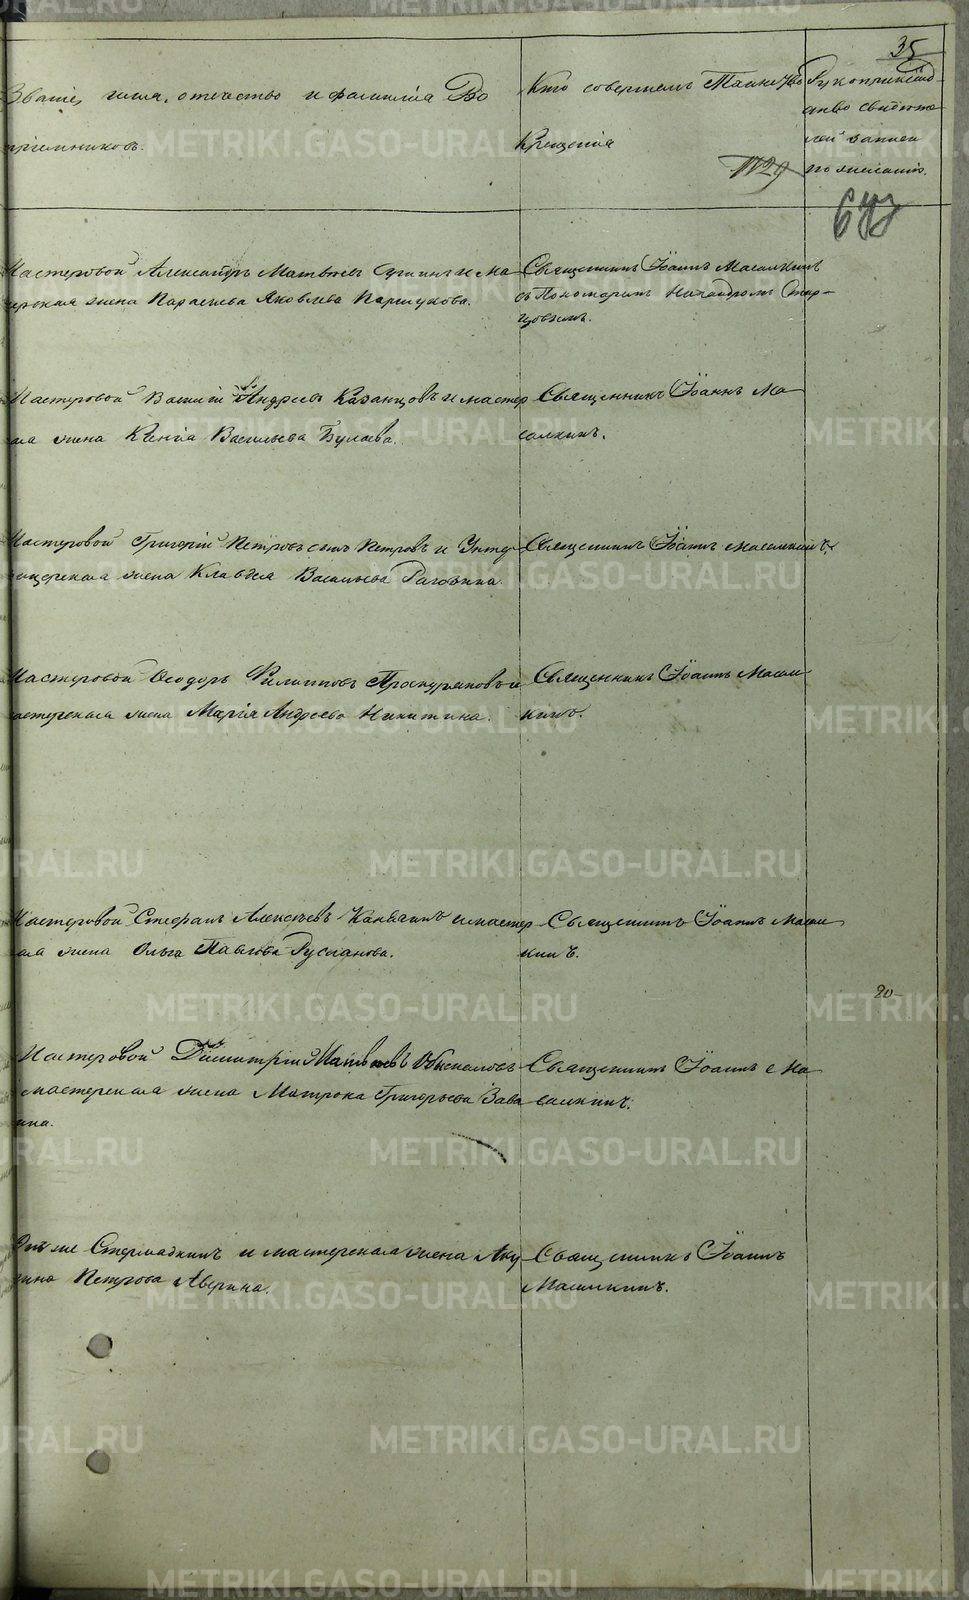 35
Званіе, имя, отечество и фамилія Во
пріемниковъ.
Кто совершалъ Таинство
Крещенія
Рукоприкладство свидѣте
лей записи
по желанію.
1129
Мастеровой Александръ Матвѣевъ и ма
жена Параскева Яковлева Паршукова.
Священникъ Іоаннъ Масалкинъ
съ Пономаремъ Никандромъ Стар-
цовымъ.
Мастеровой Василій Андреевъ Казанцовъ и мастер
жена Ксенія Васильева Бунаева.
Священникъ Іоаннъ Ма
салкинъ.
Мастеровой Григорій Петровъ сынъ Петровъ и Унтер
жена Клавдія Васильева Раговина.
Священникъ Іоаннъ Масалкинъ
Мастеровой Ѳеодоръ Филипповъ Проскуряковъ и
мастерская жена Марія Андреева Никитина.
Священникъ Іоаннъ Масал
кинъ.
Мастеровой Стефанъ Алексѣевъ и мастер
жена Ольга Павлова Русланова.
Священникъ Іоаннъ Масал
кинъ.
20
Мастеровой Димитрій Матвѣевъ Обыскаловъ
мастерская жена Матрона Григорьева Зава
ина.
Священникъ Іоаннъ Ма
салкинъ.
Стермадкинъ и мастерская жена Аку
лина Петрова Аверина.
Священникъ Іоаннъ
Масалкинъ.
METRIKI.GASO-URAL.RU